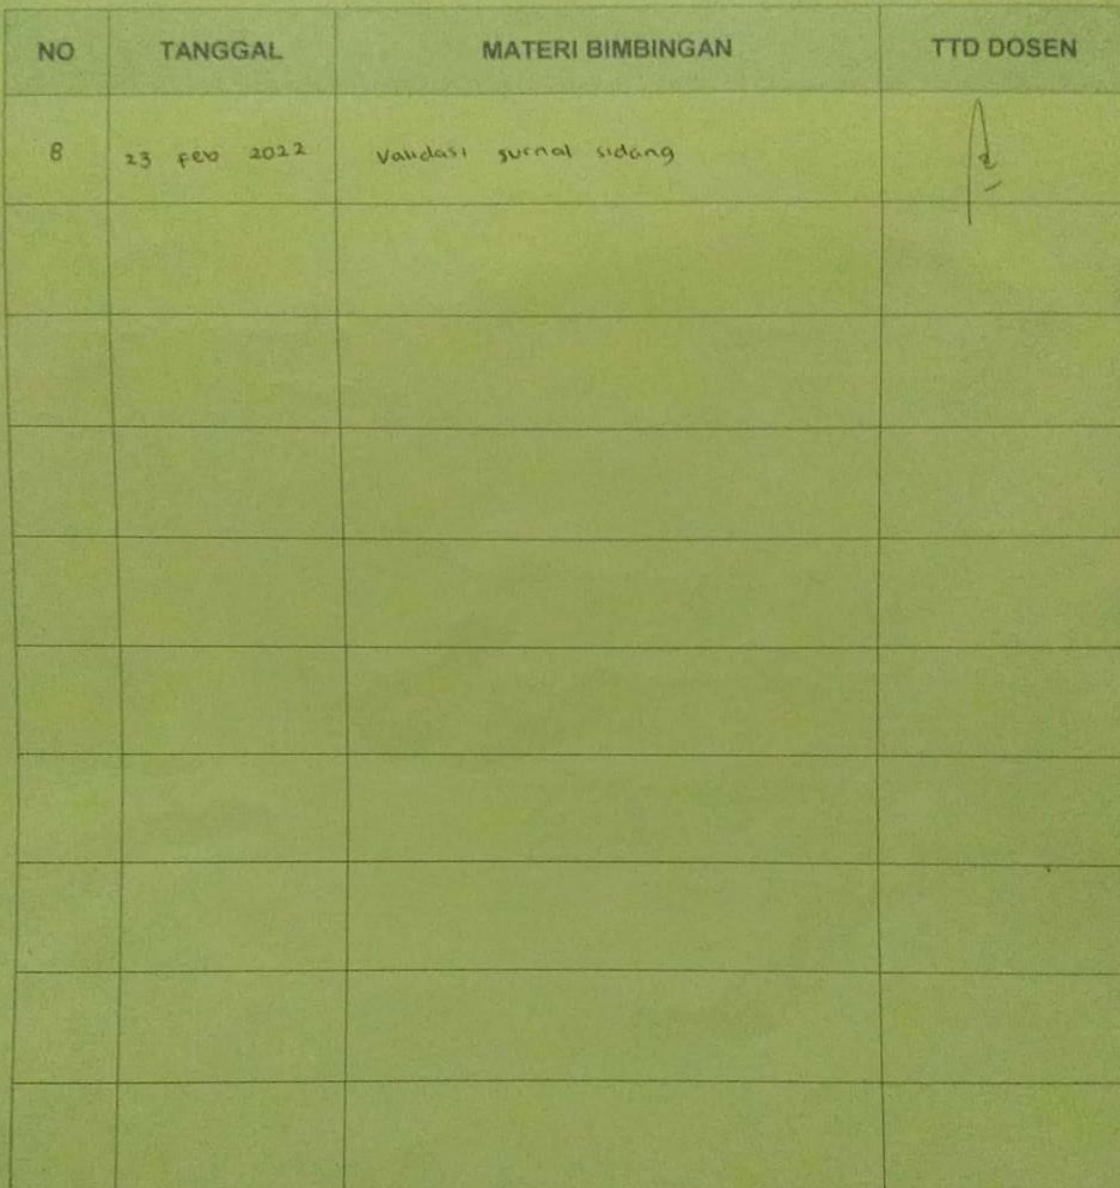 NO TANGGAL MATERI BIMBINGAN TTD DOSEN
8 23 Feb 2022 Validasi jurnal sidang